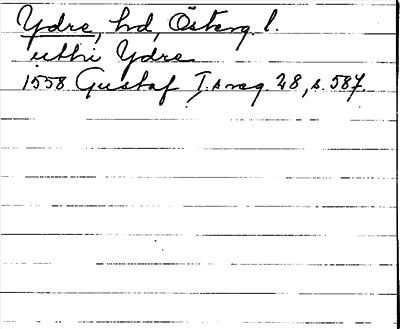 Ydre, hd, Österg l.
uthi Ydre
1558 Gustaf I.s reg. 28, s. 587.